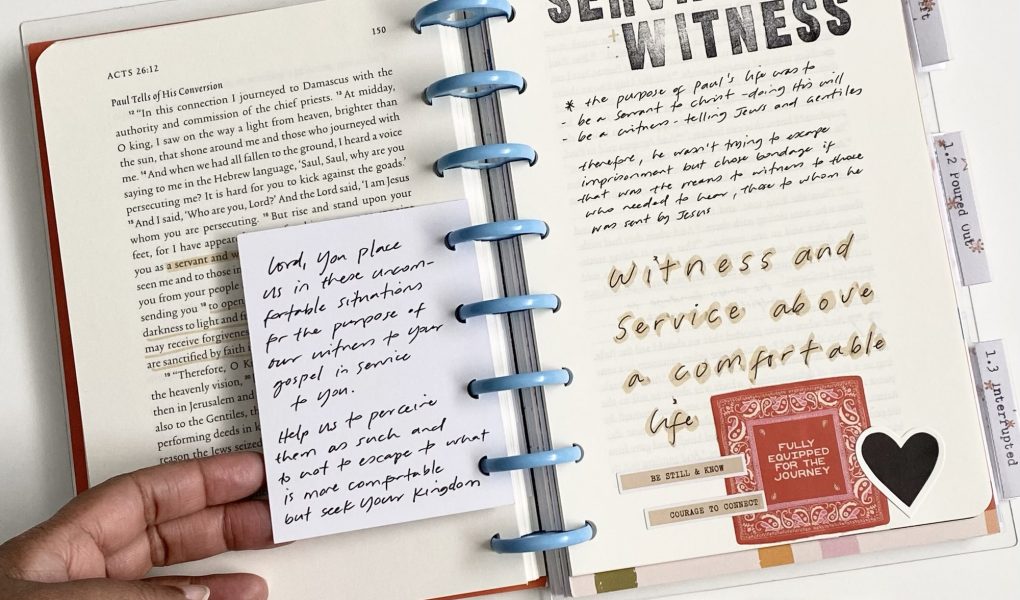 150
ACTS 26:12
Paul Tells of His Conversion
12 “In this connection I journeyed to Damascus with the
authority and commission of the chief priests. 13 At midday,
O king, I saw on the way a light from heaven, brighter than
the sun, that shone around me and those who journeyed with
me. 14 And when we had all fallen to the ground, I heard a voice
saying to me in the Hebrew language, ‘Saul, Saul, why are you
persecuting me? It is hard for you to kick against the goads.’
15 And I said, ‘Who are you, Lord?’ And the Lord said, ‘I am Jesus
whom you are persecuting. 16 But rise and stand upon your
feet, for I have appeared
you as a servant and
seen me and to those in
you from your people
sending you 18 to open
darkness to light and
may receive forgiveness
are sanctified by faith
19 “Therefore, O
the heavenly vision, 20
then in Jerusalem and
also to the Gentiles,
performing deeds in
reason the Jews seized
Lord, you place
us in these uncom-
fortable situations
for the purpose of
our witness to your
gospel in service
to you.
Help us to perceive
them as such and
to not to escape to what
is more comfortable
but seek your kingdom
WITNESS
* the purpose of Paul's life was to
- be a servant to Christ - doing His will
- be a witness - telling Jews and Gentiles
therefore, he wasn't trying to escape
imprisonment but chose bondage if
that was the means to witness to those
who needed to hear, those to whom he
was sent by Jesus
Witness and
service above
a comfortable
life
FULLY
EQUIPPED
FOR THE
JOURNEY
BE STILL & KNOW
COURAGE TO CONNECT
1.2 Poured Out
1.3 Interrupted